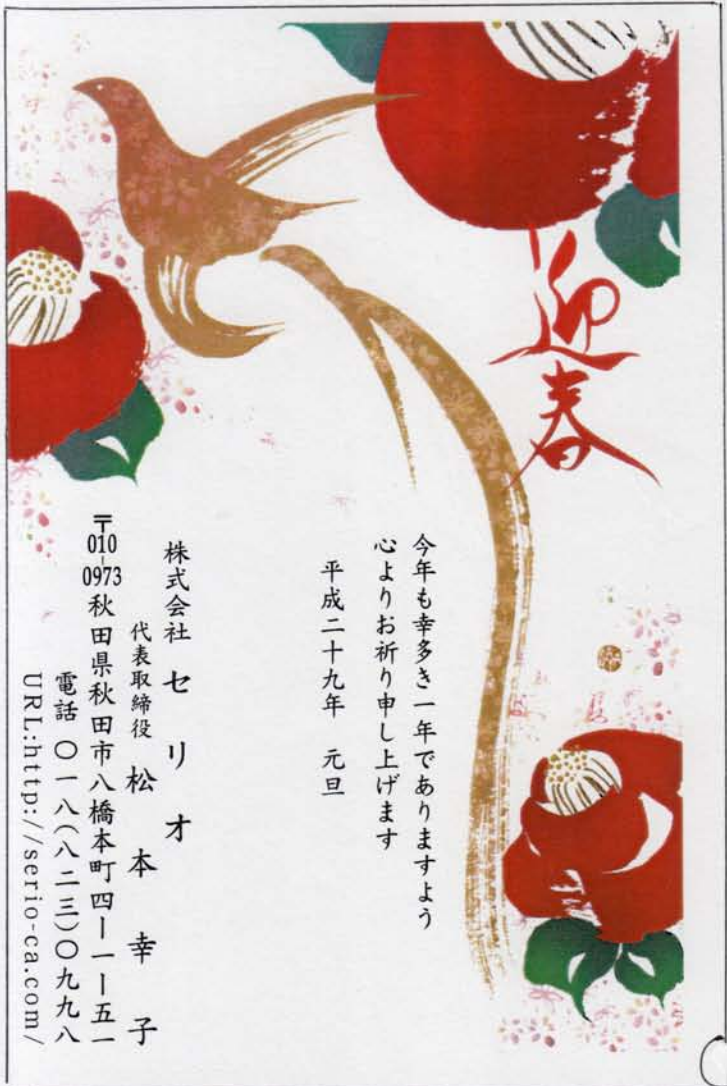 迎春
今年も幸多き一年でありますよう
心よりお祈り申し上げます
平成二十九年　元旦
株式会社 セリオ
代表取締役 松本幸子
〒010-0973 秋田県秋田市八橋本町四ー一ー五一
電話 〇一八(八二三)〇九九八
URL:http://serio-ca.com/